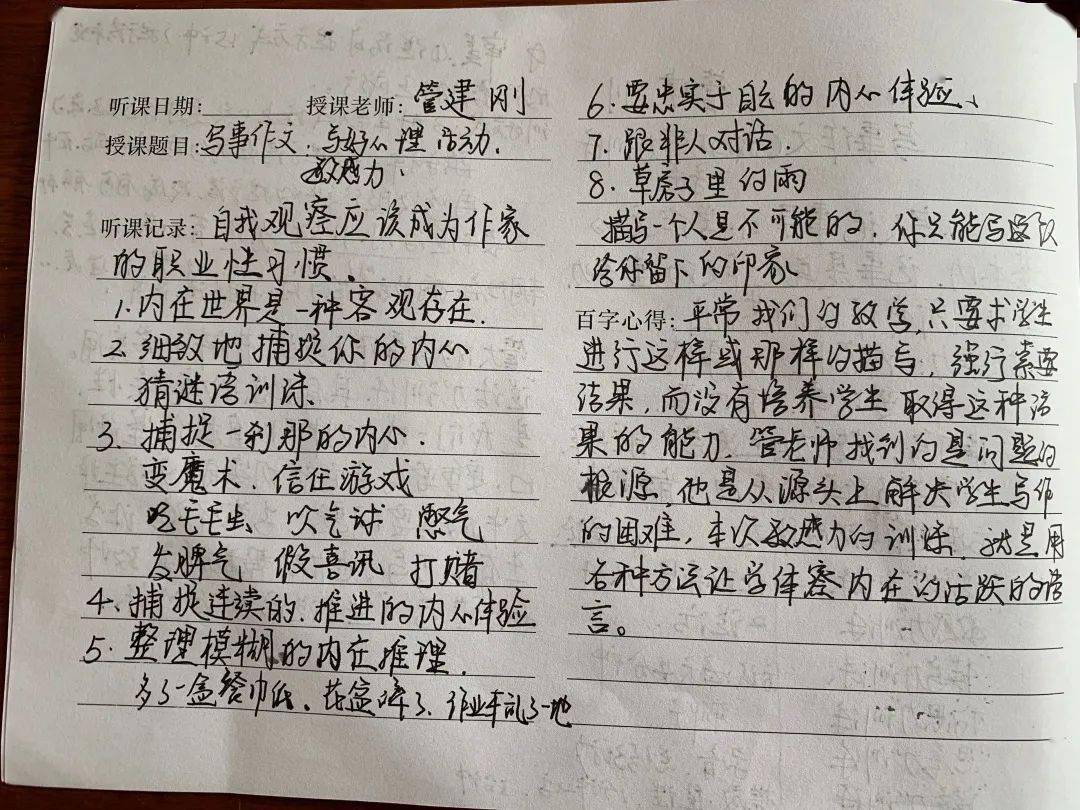 听课日期: 授课老师: 管建刚
授课题目: 写事作文.写好心理活动.
敏感力.
听课记录: 自我观察应该成为作家
的职业性习惯。
1.内在世界是一种客观存在.
2.细致地捕捉你的内心
猜谜语训练、
3.捕捉一刹那的内心.
变魔术、信任游戏
吃毛毛虫 吹气球 憋气
发脾气 假喜讯 打赌
4、捕捉连续的.推进的内心体验
5.整理模糊的内在推理.
多了一盒餐巾纸、花盆碎了、作业本乱了一地
6.要忠实于自己的内心体验、
7.跟非人对话.
8.草房子里的雨
描写一个人是不可能的.你只能写这个人
给你留下的印象、
百字心得: 平常我们的教学,只要求学生
进行这样或那样的描写,强行索要
结果,而没有培养学生取得这种结
果的能力.管老师找到的是问题的
根源,他是从源头上解决学生写作
的困难,本次敏感力的训练.就是用
各种方法让学体察内在的活跃的语
言。